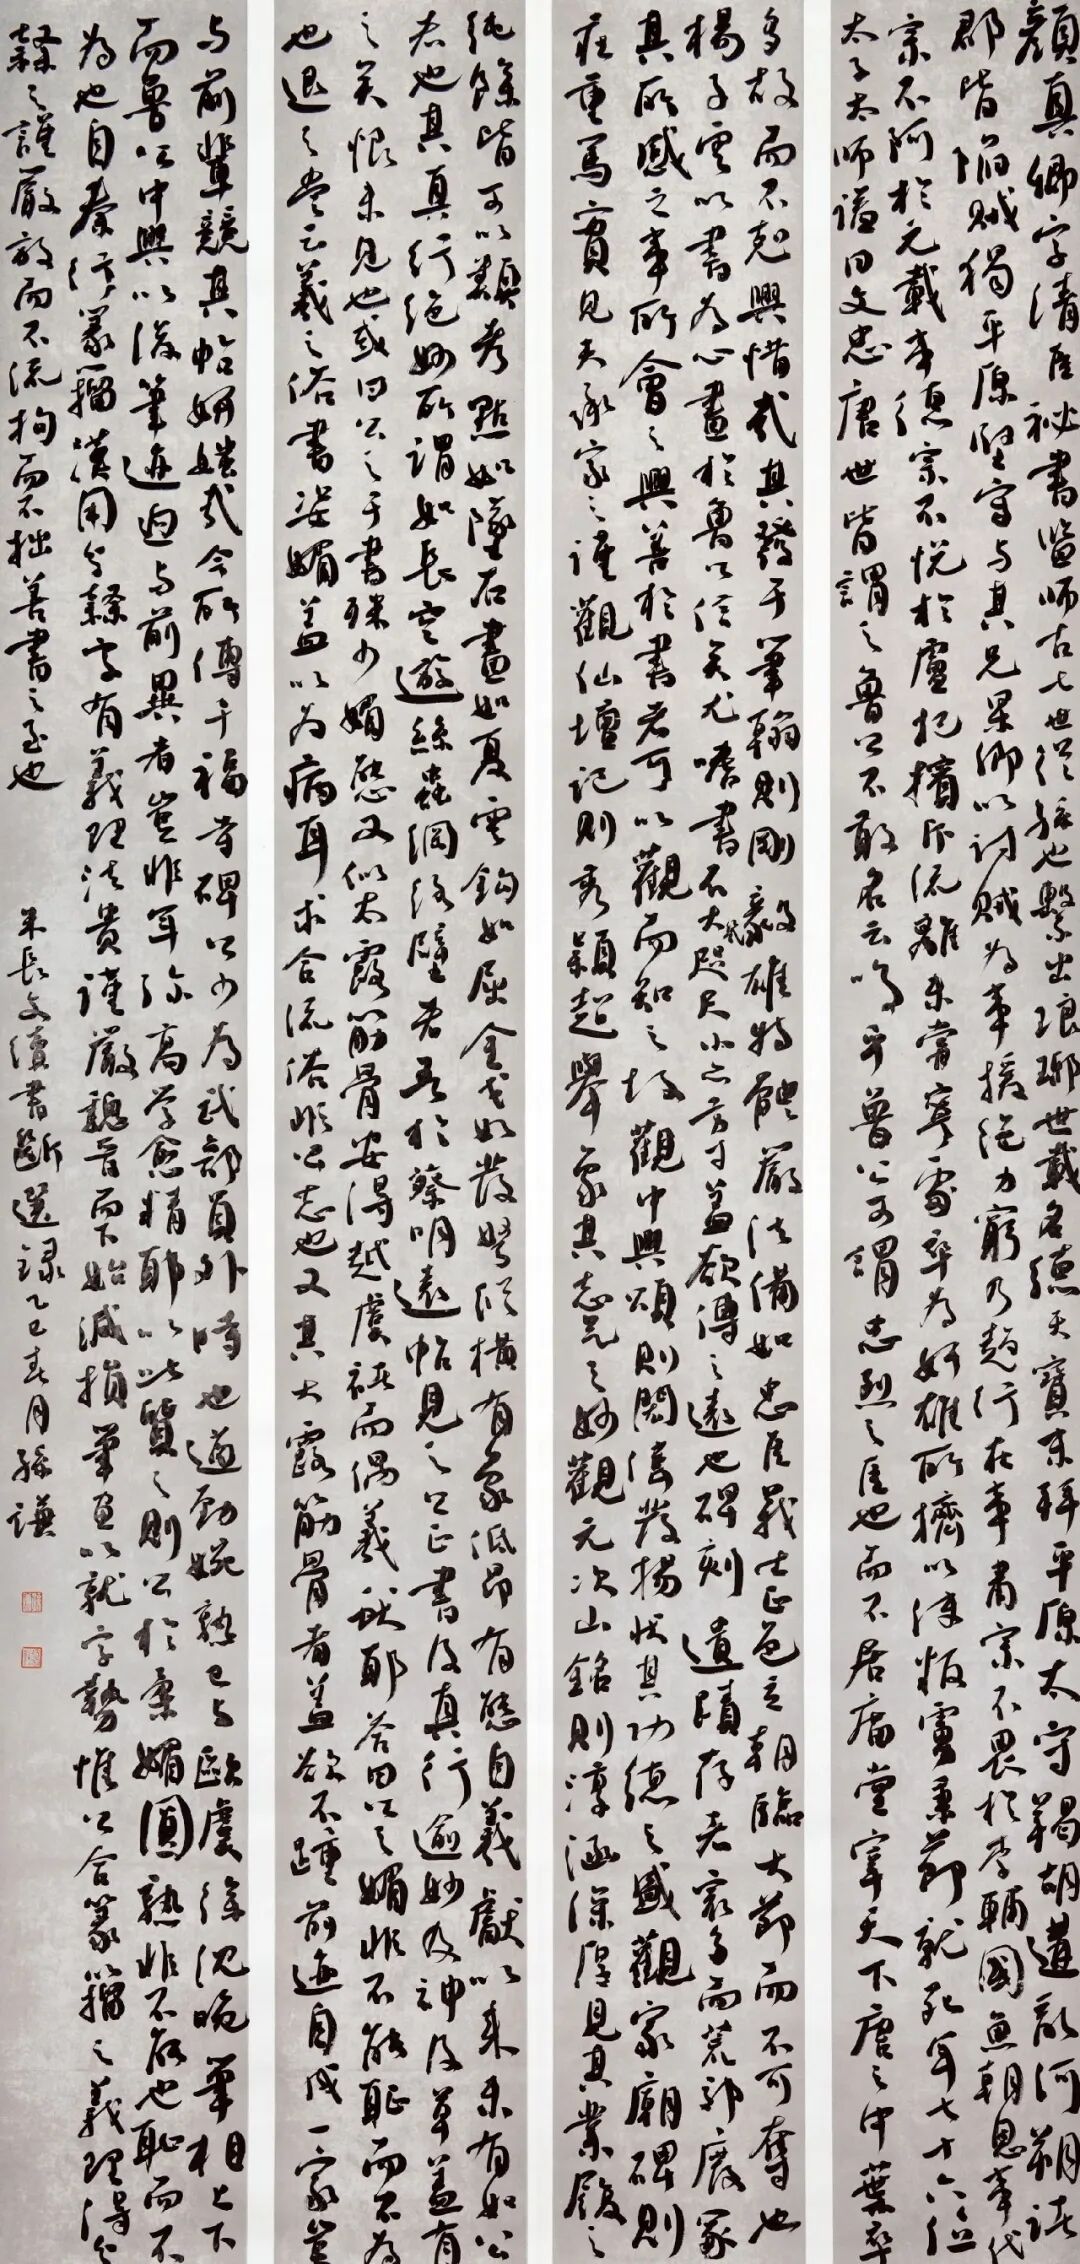 顏真卿字清臣祕書監師古七世從孫也繫出琅琊世載名德天寶末拜平原太守羯胡遘亂河朔諸
郡皆陷賊獨平原堅守与其兄杲卿以討賊為事援絕力窮乃趨行在事肅宗不畏於李輔國魚朝恩事代
宗不阿於元載事德宗不悅於盧杞擯斥流離未嘗寧處卒為奸雄所擠以陷叛虜秉節就死年七十六位
太子太師謚曰文忠唐世皆謂之魯公不敢名云嗚乎魯公可謂忠烈之臣也而不居廟堂宰天下唐之中葉卒
多故而不克興惜哉其發于筆翰則剛毅雄特體嚴法備如忠臣義士正色立朝臨大節而不可奪也
楊子雲以書為心畫於魯公信矣尤嗜書石大幾咫尺小亦方寸蓋欲傳之遠也碑刻遺蹟存者寂多而荒郊廢冢
其所感之事所會之興善於書者可以觀而知之故觀中興頌則閎偉發揚狀其功德之盛觀家廟碑則
莊重篤實見夫承家之謹觀仙壇記則秀穎超舉象其志氣之妙觀元次山銘則淳涵深厚見其業履之
純餘皆可以類考點如墜石畫如夏雲鉤如屈金戈如發弩縱橫有象低昂有態自羲獻以來未有如公
者也其真行絕妙所謂如長空遊絲蟲網絡壁者吾於蔡明遠帖見之公正書及真行逾妙及神及草蓋有
之矣恨未見也或曰公之于書殊少媚態又似太露筋骨安得越虞褚而偶羲獻耶答曰公之媚非不能恥而不為
也退之嘗云羲之俗書姿媚蓋以為病耳求合流俗非公志也又其大露筋骨者蓋欲不踵前迹自成一家豈
与前輩競其帖妍媸哉今所傳千福寺碑公少為武部員外時也遒勁婉熟已与歐虞徐沈晚筆相上下
而魯公中興以後筆迹迥与前異者豈非年彌高學愈精耶以此質之則公於柔媚圓熟非不能也恥而不
為也自秦行篆籀漢用分隸字有義理法貴謹嚴魏晉而下始減損筆畫以就字勢惟公合篆籀之義理得分
隸之謹嚴放而不流拘而不拙善書之至也
朱長文續書斷選錄乙巳春月孫謙